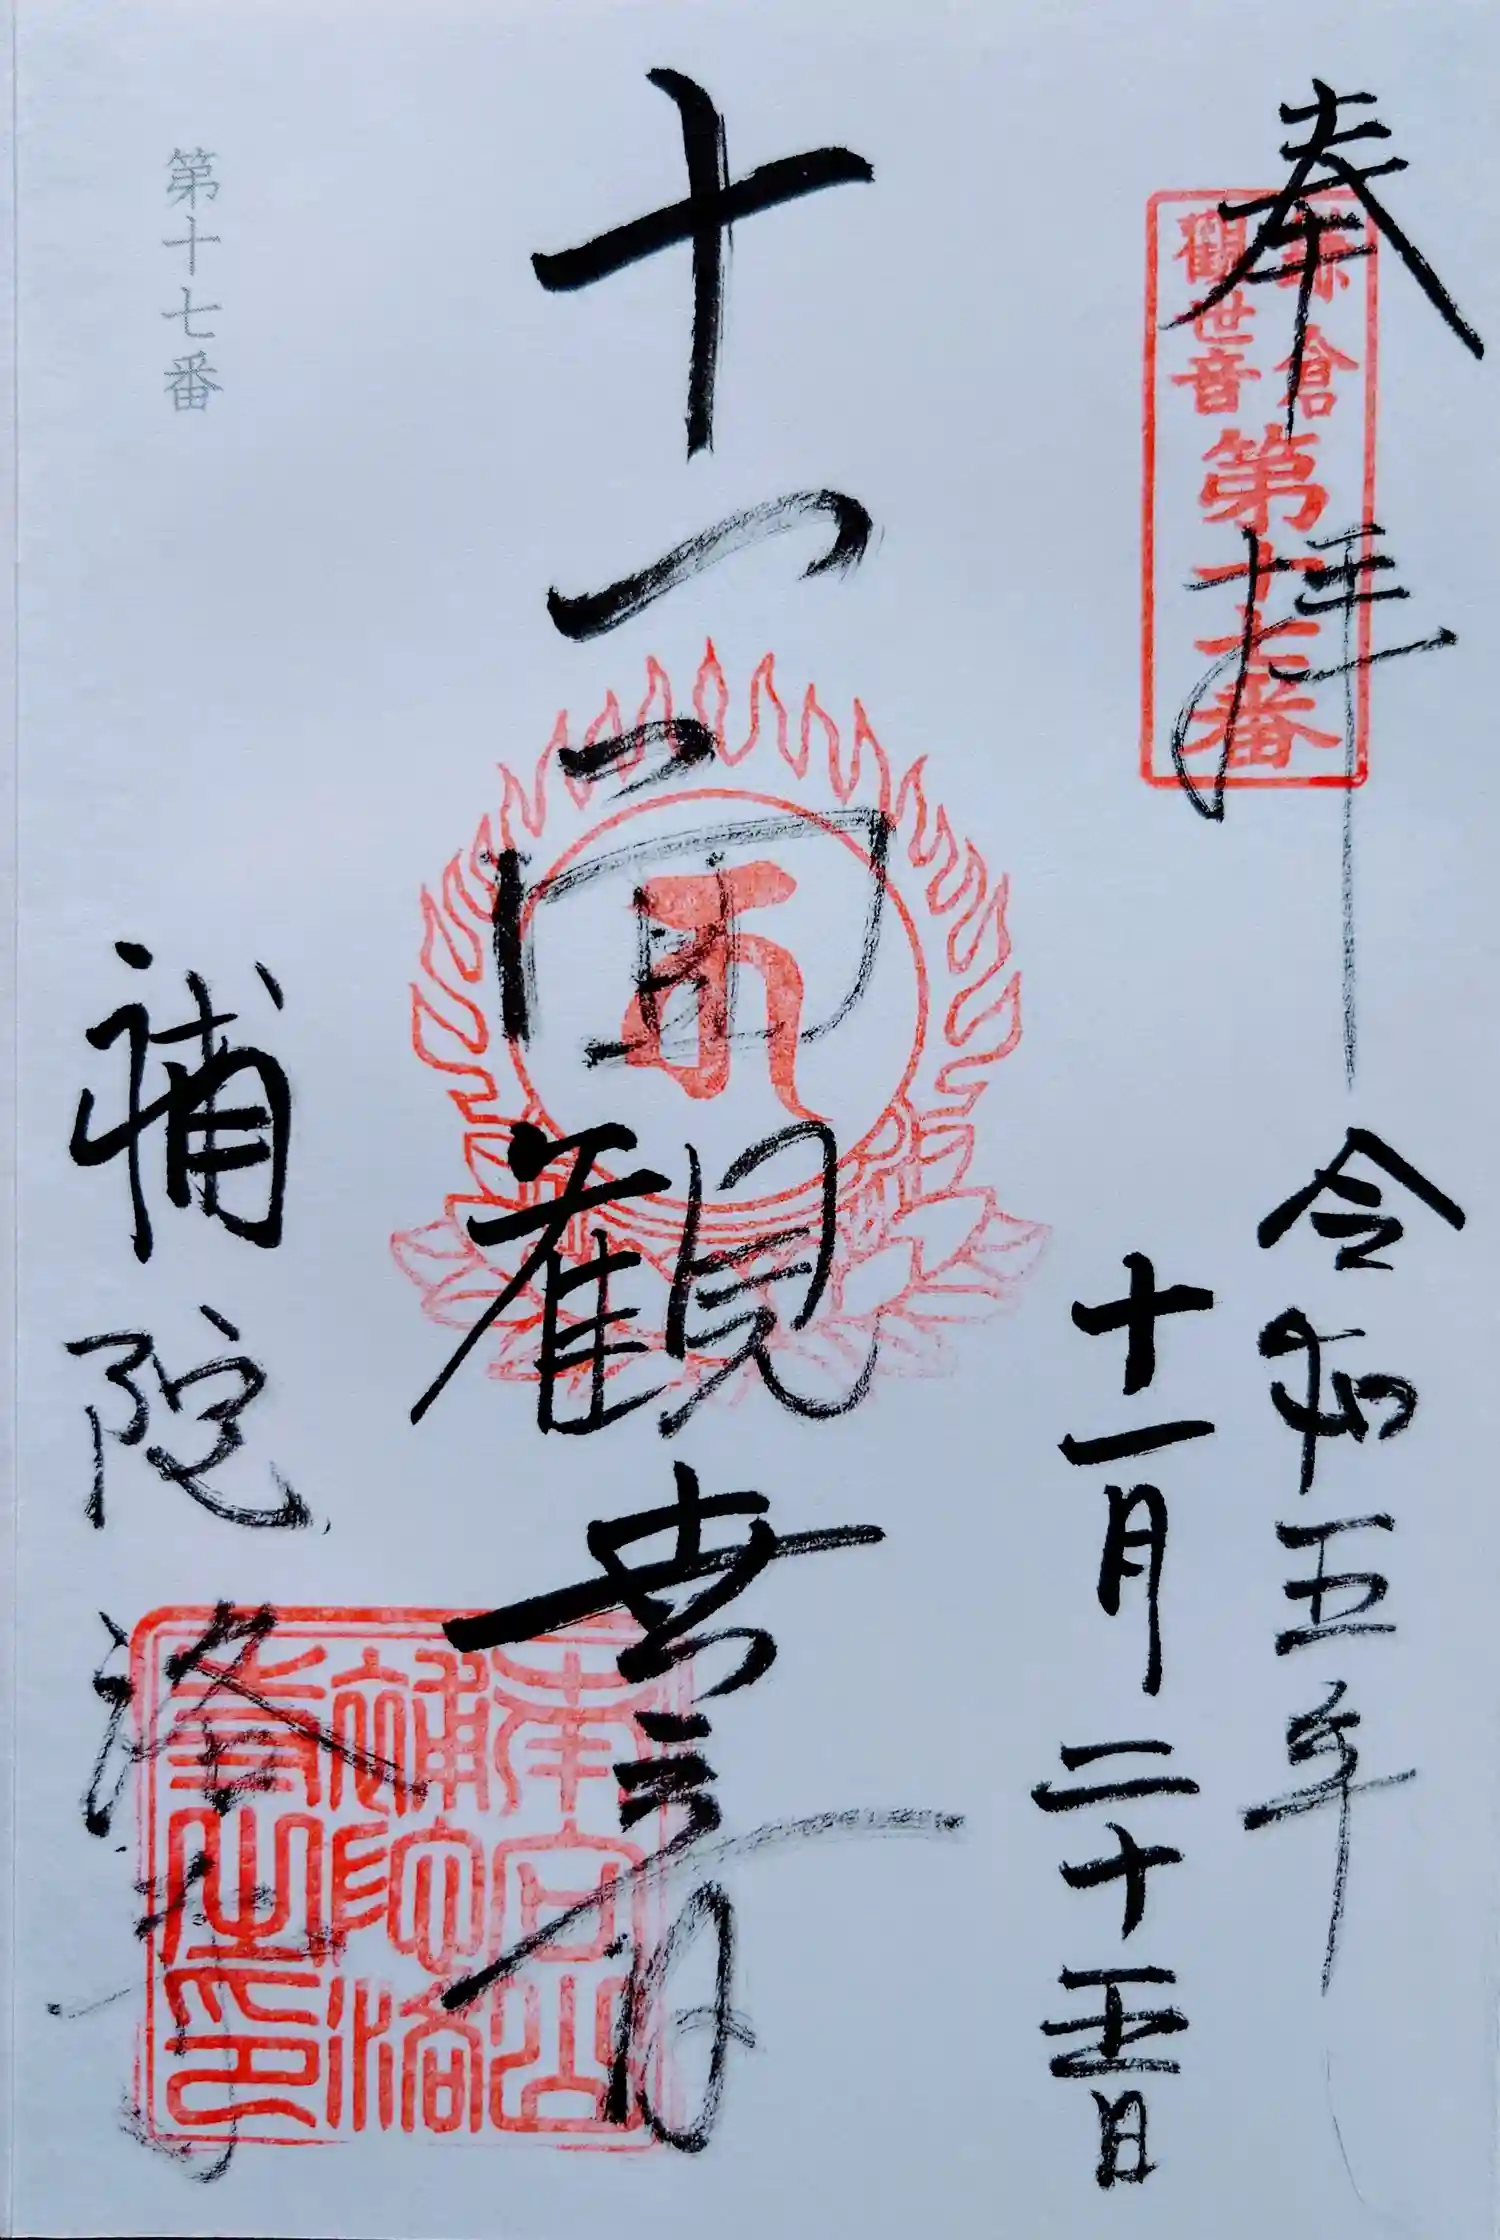 奉拝
鎌倉
觀世音
第十七番
令和五年
十一月二十五日
十一面観世音
南向山
補陀洛
寺之印
補陀洛寺
第十七番